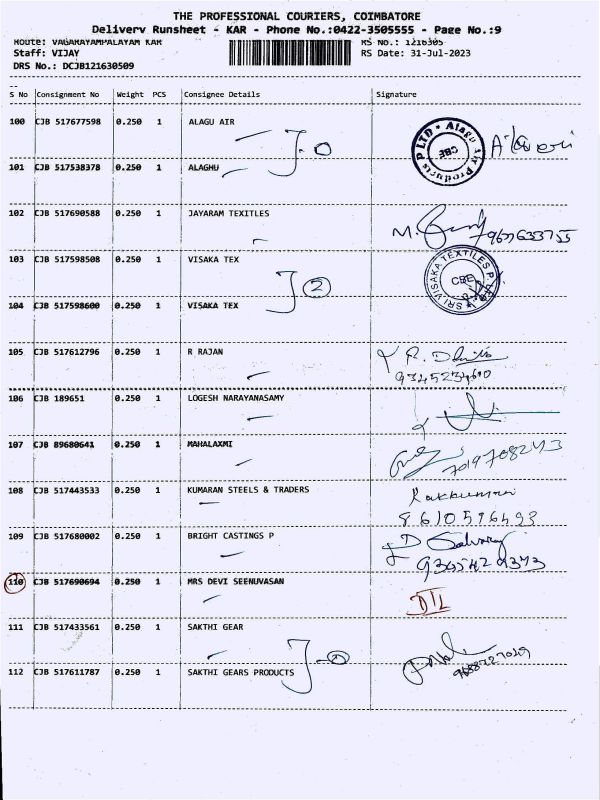 THE PROFESSIONAL COURIERS, COIMBATORE
Delivery Runsheet - KAR - Phone No.:0422-3505555 - Page No.:9
Route: VAGARAYAMPALAYAM KAR RS No.: 1216305
Staff: VIJAY RS Date: 31-Jul-2023
DRS No.: DCJB121630509
S No Consignment No Weight PCS Consignee Details Signature
100 CJB 517677598 0.250 1 ALAGU AIR
101 CJB 517538378 0.250 1 ALAGHU
102 CJB 517690588 0.250 1 JAYARAM TEXITLES
9677633755
103 CJB 517598508 0.250 1 VISAKA TEX
2
SRI VISAKA TEXTILES P
CBE
104 CJB 517598600 0.250 1 VISAKA TEX
105 CJB 517612796 0.250 1 R RAJAN
106 CJB 189651 0.250 1 LOGESH NARAYANASAMY
107 CJB 89680641 0.250 1 MAHALAXMI
7019708243
108 CJB 517443533 0.250 1 KUMARAN STEELS & TRADERS
8610596493
109 CJB 517680002 0.250 1 BRIGHT CASTINGS P
110 CJB 517690694 0.250 1 MRS DEVI SEENUVASAN
D/L
111 CJB 517433561 0.250 1 SAKTHI GEAR
112 CJB 517611787 0.250 1 SAKTHI GEARS PRODUCTS